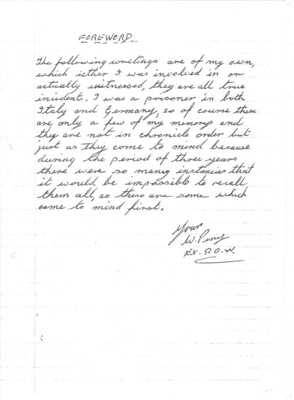 FOREWORD.
The following writings are of my own,
which iether I was involved in or
actually witnessed, they are all true
incident. I was a prisoner in both
Italy and Germany, so of course these
are only a few of my memorys and
they are not in chronicle order but
just as they come to mind because
during the period of three years
there were so many instances that
it would be impossible to recall
them all, so there are some which
came to mind first.
Yours
W. Perry
Ex. P.O.W.